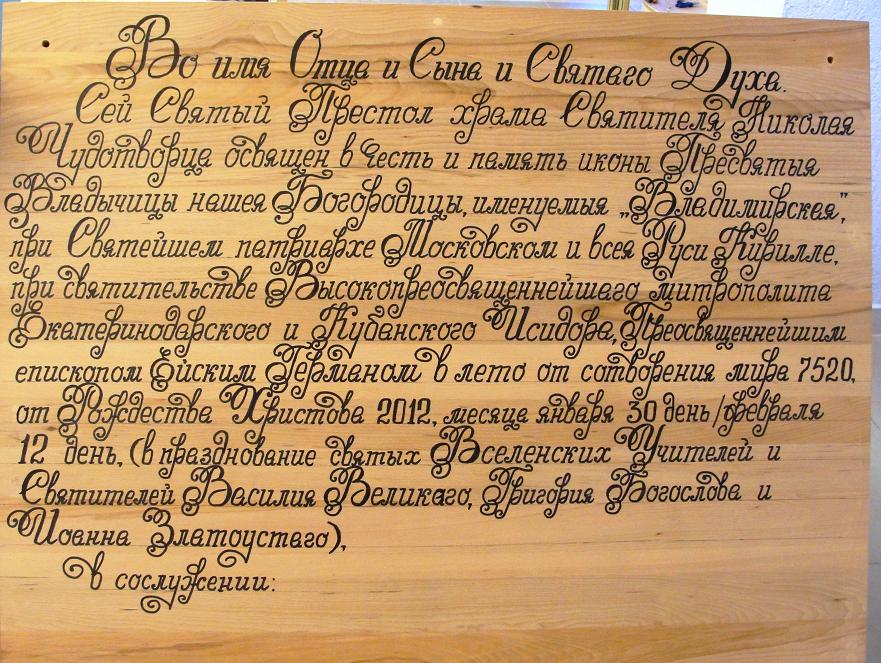 Во имя Отца и Сына и Святаго Духа.
Сей Святый Престол храма Святителя Николая
Чудотворца освящен в честь и память иконы Пресвятыя
Владычицы нашея Богородицы, именуемыя „Владимирская",
при Святейшем патриархе Московском и всея Руси Кирилле,
при святительстве Высокопреосвященнейшаго митрополита
Екатеринодарского и Кубанского Исидора, Преосвященнейшим
епископом Ейским Германом в лето от сотворения мира 7520,
от Рождества Христова 2012, месяца января 30 день /февраля
12 день, (в празднование святых Вселенских Учителей и
Святителей Василия Великаго, Григория Богослова и
Иоанна Златоустаго),
в сослужении: